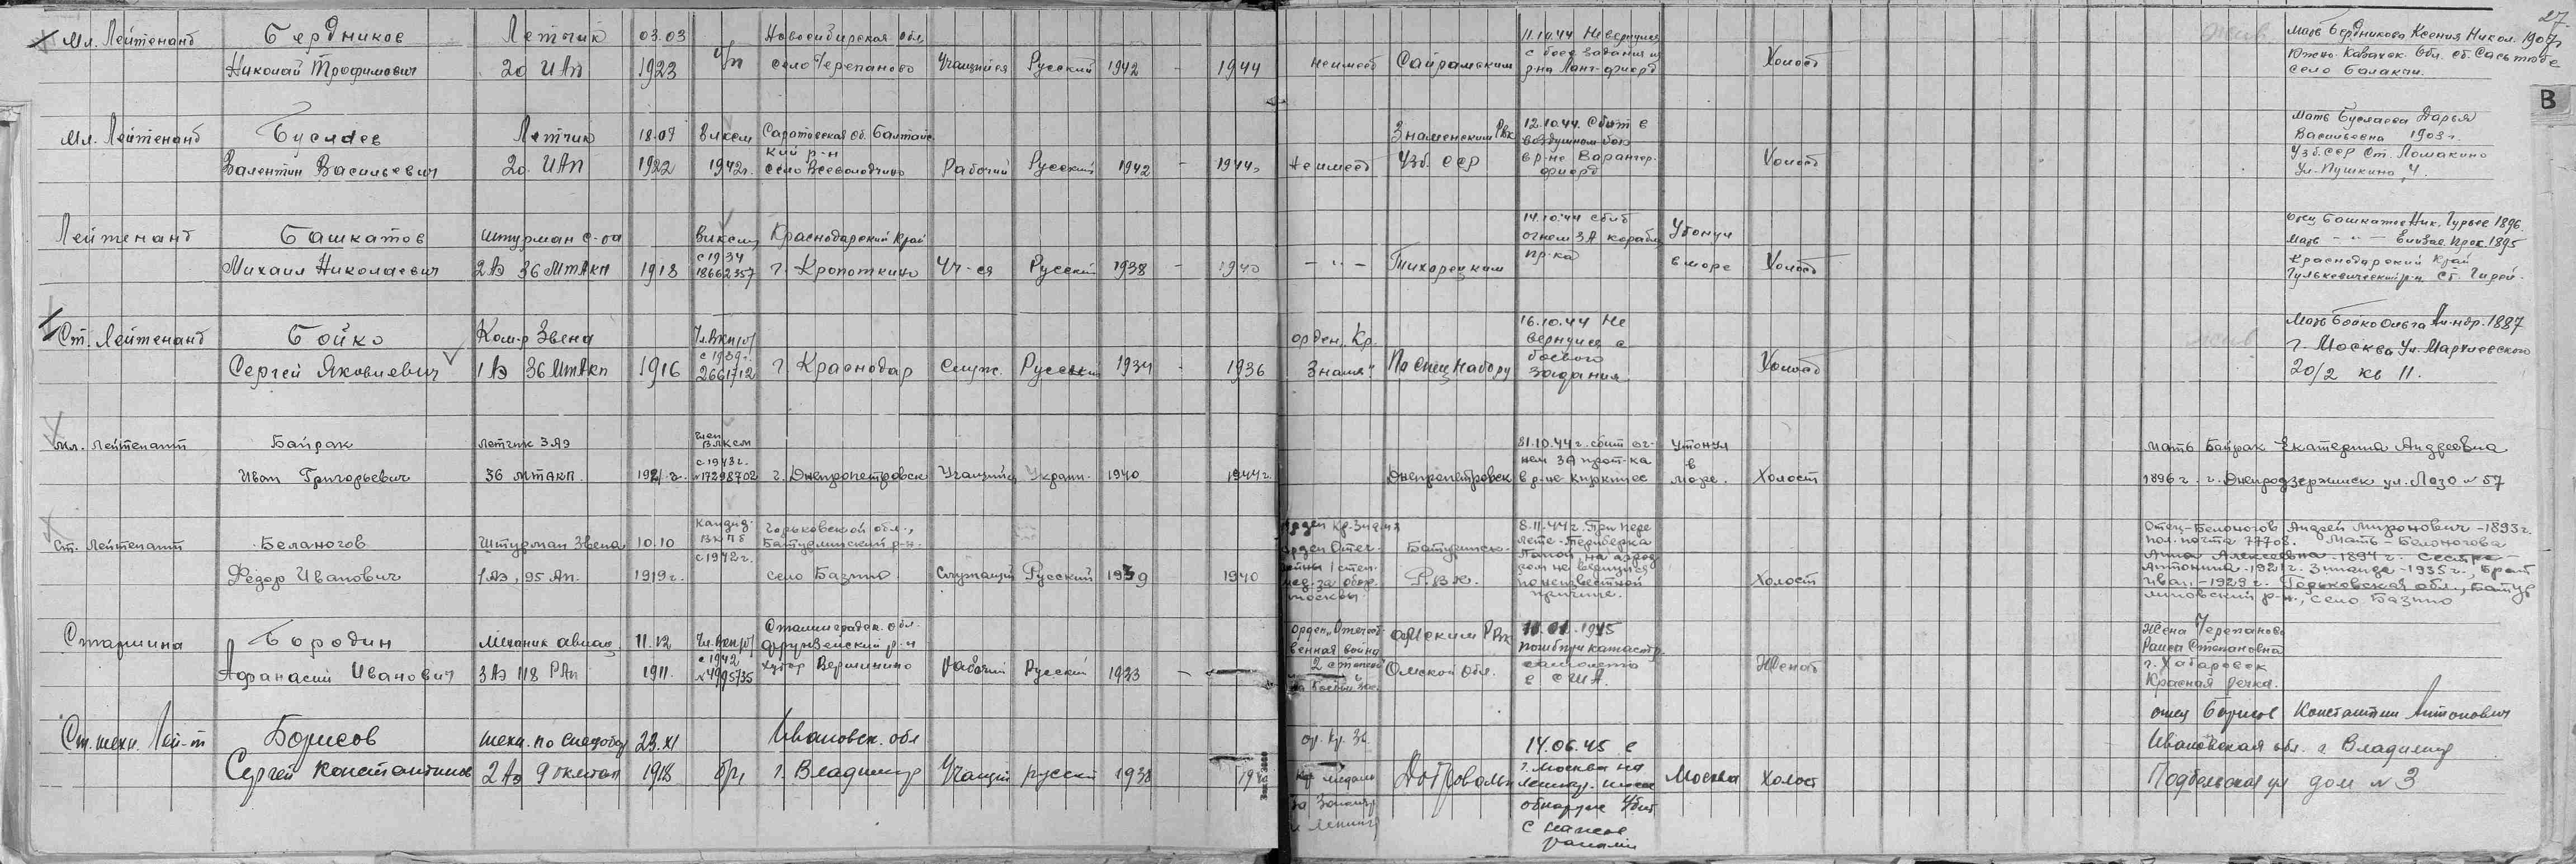 27
Мл. Лейтенанд Бердников Летчик 03.03 Новосибирская обл. 11.10.44 Не вернулся Мать Бердникова Ксения Никол. 1907г
Николай Трофимович 20 ИАП 1923 б/п село Черепаново Учащийся Русский 1942 - 1944 Неимеет Сайрамским с боев. задания из р-на Ланг-фиорд Холост Южно-Казахск. Обл. ст. Сас тюбе
село Балакчи.
В
Мл. Лейтенанд Буслаев Летчик 18.07 Влксм Саратовская об. Балтайс Знаменским Рвк 12.10.44. Сбит в Мать Буслаева Дарья
кий р-н воздушном бою Васильевна 1903 г.
Валентин Васильевич 20. ИАП 1922 1942г. село Всеволодчино Рабочий Русский 1942 - 1944г Неимеет Узб. ССР в р-не Варангер- Холост Узб. ССР Ст. Ломакино
фиорд Ул. Пушкино, 4.
Лейтенанд Башкатов штурман с-та Влксм Краснодарский Край 14.10.44 сбит Утонул отец Башкатов Ник. Гурьев 1896.
с 1934 огнем ЗА корабл. Мать - " - Елизав. Прок. 1895
Михаил Николаевич 2 АЭ 36 МТАКП 1918 18662357 г. Кропоткино Уч-ся Русский 1938 - 1940 - " - Тихорецким пр-ка в море Холост Краснодарский Край
Гулькевический р-н. Ст. Гирей.
Ст. Лейтенанд Бойко Ком-р Звена Чл. Вкп(б) орден „Кр. 16.10.44 Не Мать Бойко Ольга 1887
с 1939 г. вернулся с г. Москва Ул. Мархлевского
Сергей Яковлевич 1 АЭ 36 МТАКП 1916 2661712 г. Краснодар Служ. Русский 1934 - 1936 Знамя" По Спец набору боевого задания Холост 20/2 кв 11.
Мл. Лейтенант Байрак летчик 3 АЭ член ВЛКСМ 31.10.44 г. сбит ог- утонул Мать Байрак Екатерина Андреевна
с 1943 г. нем ЗА прот-ка в
Иван Григорьевич 36 МТАКП. 1921 г. №17298702 г. Днепропетровск Учащийся Украин. 1940 1944 г. Днепропетровск в р-не Киркинес море. Холост 1896 г. г. Днепродзержинск ул. Лазо № 57
Ст. Лейтенант Беланогов Штурман Звена 10.10 Кандид. ВКПб Горьковской обл., Батурлинский р-н. орден Кр. Знамя Батурлинс. 8.11.44 г. При пере Отец - Белоногов Андрей Миронович - 1893 г.
с 1942 г. орден Отеч. лете - Териберка пол. почта 77708. Мать - Белоногова
войны 1 степ. на аэрод Анна Алексеевна - 1894 г. Сестра -
Фёдор Иванович 1 АЭ, 95 Ап. 1919 г. село Базино Служащий Русский 1939 1940 мед. за обор. Р.В.К. ром не вернулся Холост Антонина - 1921 г. Зинаида - 1935 г., Брат
Москвы. по неизвестной Иван - 1929 г. Горьковская обл., Батур
причине. линовский р-н., село Базино
Старшина Бородин Механик авиац. 11.12 Чл. Вкп(б) Сталинградск. обл. орден „Отечест РВК 11.01.1945 Жена Черепанова
с 1942 Фрунзенский р-н венная война погиб при катастр. Раиса Степановна
Афанасий Иванович 3 АЭ 118 РАП 1911. №4995735 хутор Вершинино Рабочий Русский 1933 - 2 степени Омской Обл. самолета Женат г. Хабаровск
за боевые зас. в США. Красная речка.
Ст. техн. Лей-т Борисов техн. по спецобор 23.XI Ивановск. обл ор. Кр. Зв. 14.06.45 в отец Борисов Константин Антонович
г. Москва на Ивановская обл. г Владимир
Сергей Константинов 2 Аэ 9 1918 б/п г. Владимир Учащий русский 1938 Доброволь Ленингр. шоссе Москва холост Подбельская ул дом № 3
обнаруж убит
с ножев
ранами